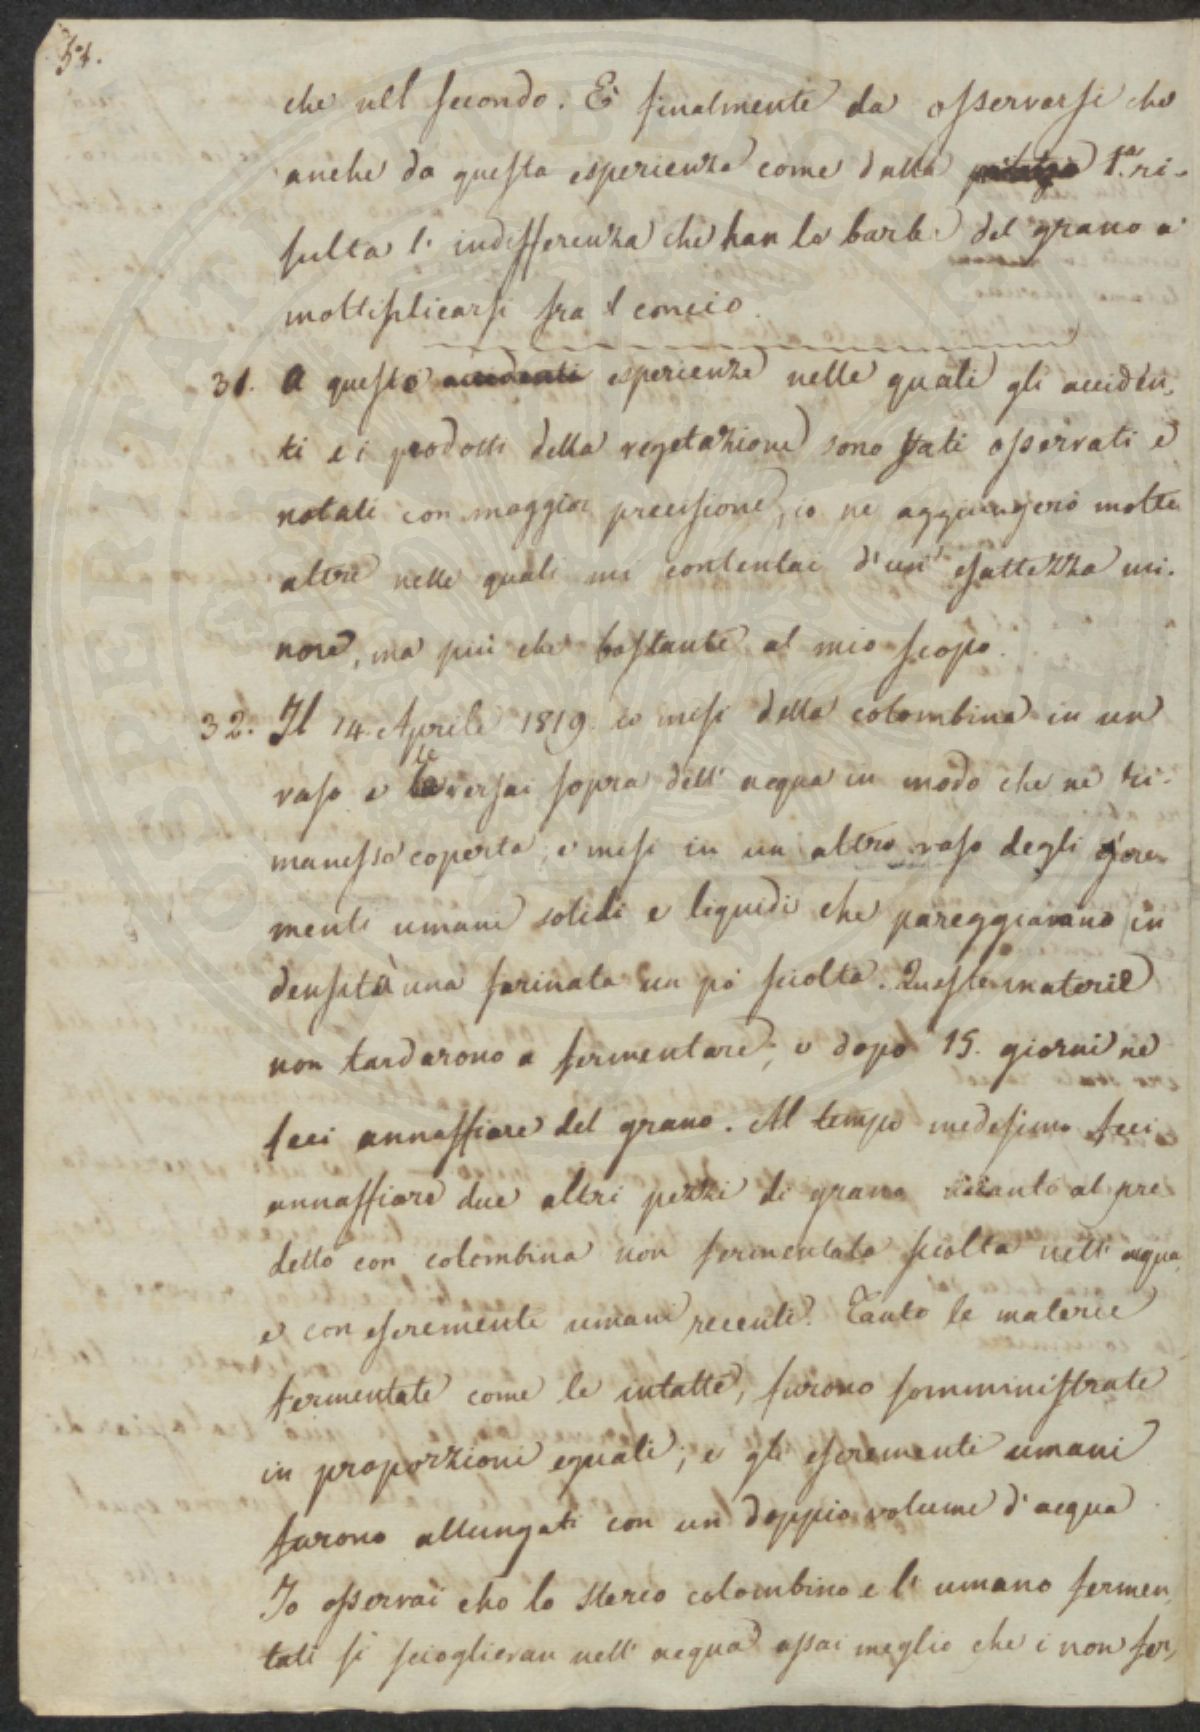 54.
che nel secondo. È finalmente da osservarsi che
anche da questa esperienza come dalla 1.a ri-
sulta l'indifferenza che han le barbe del grano a
moltiplicarsi fra 'l concio.
31. A queste accidenti esperienze nelle quali gli acciden-
ti e i prodotti della vegetazione sono stati osservati e
notati con maggior precisione, io ne aggiungerò molte
altre nelle quali mi contentai d'un esattezza mi-
nore, ma più che bastante al mio scopo.
32. Il 14 Aprile 1819 io misi della colombina in un
vaso e le versai sopra dell'acqua in modo che ne ri-
manesse coperta, e misi in un altro vaso degli escre-
menti umani solidi e liquidi che pareggiavano in
densità una farinata un pò sciolta. Queste materie
non tardarono a fermentare, e dopo 15. giorni ne
feci annaffiare del grano. Al tempo medesimo feci
annaffiare due altri pezzi di grano accanto al pre-
detto con colombina non fermentata sciolta nell'acqua,
e con escrementi umani recenti. Tanto le materie
fermentate come le intatte, furono somministrate
in proporzioni eguali; e gli escrementi umani
furono allungati con un doppio volume d'acqua
Io osservai che lo sterco colombino e l'umano fermen-
tati si scioglievan nell'acqua assai meglio che i non fer-
PROSPERITATI PUBLICAE